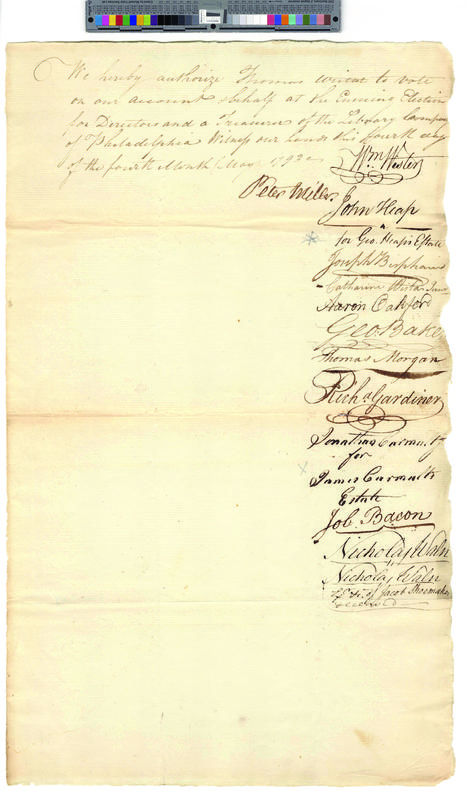 We hereby authorize Thomas Wistar to vote
on our account & behalf at the Ensuing Election
for Directors and a Treasurer of the Library Company
of Philadelphia Witness our hands this fourth day
of the fourth Month (May 1792
Wm Wister
Peter Miller
John Heap
for Geo. Heap's Estate
Joseph
Catharine Wistar Junr
Aaron Oakford
Geo. Bake
Thomas Morgan
Richd Gardiner
Jonathan Carmalt
for
James Carmalt's
Estate
Job Bacon
Nicholas Waln
Nicholas Waln
of Jacob Shoemaker
deceased